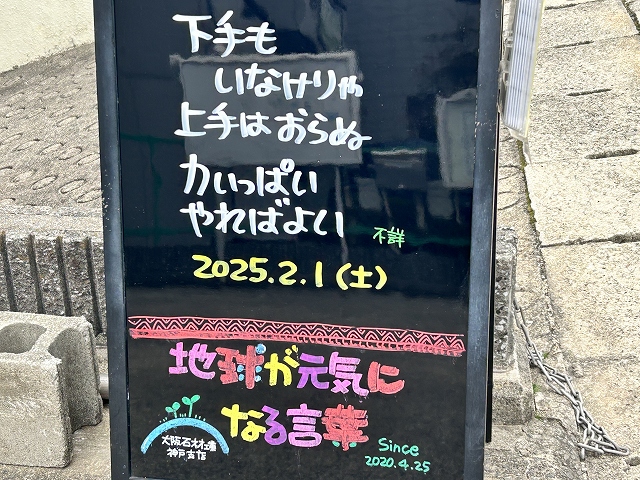 下手も
いなけりゃ
上手はおらぬ
力いっぱい
やればよい
不詳
2025.2.1(土)
地球が元気に
なる言葉
大阪石材工業
神戸支店
Since
2020.4.25